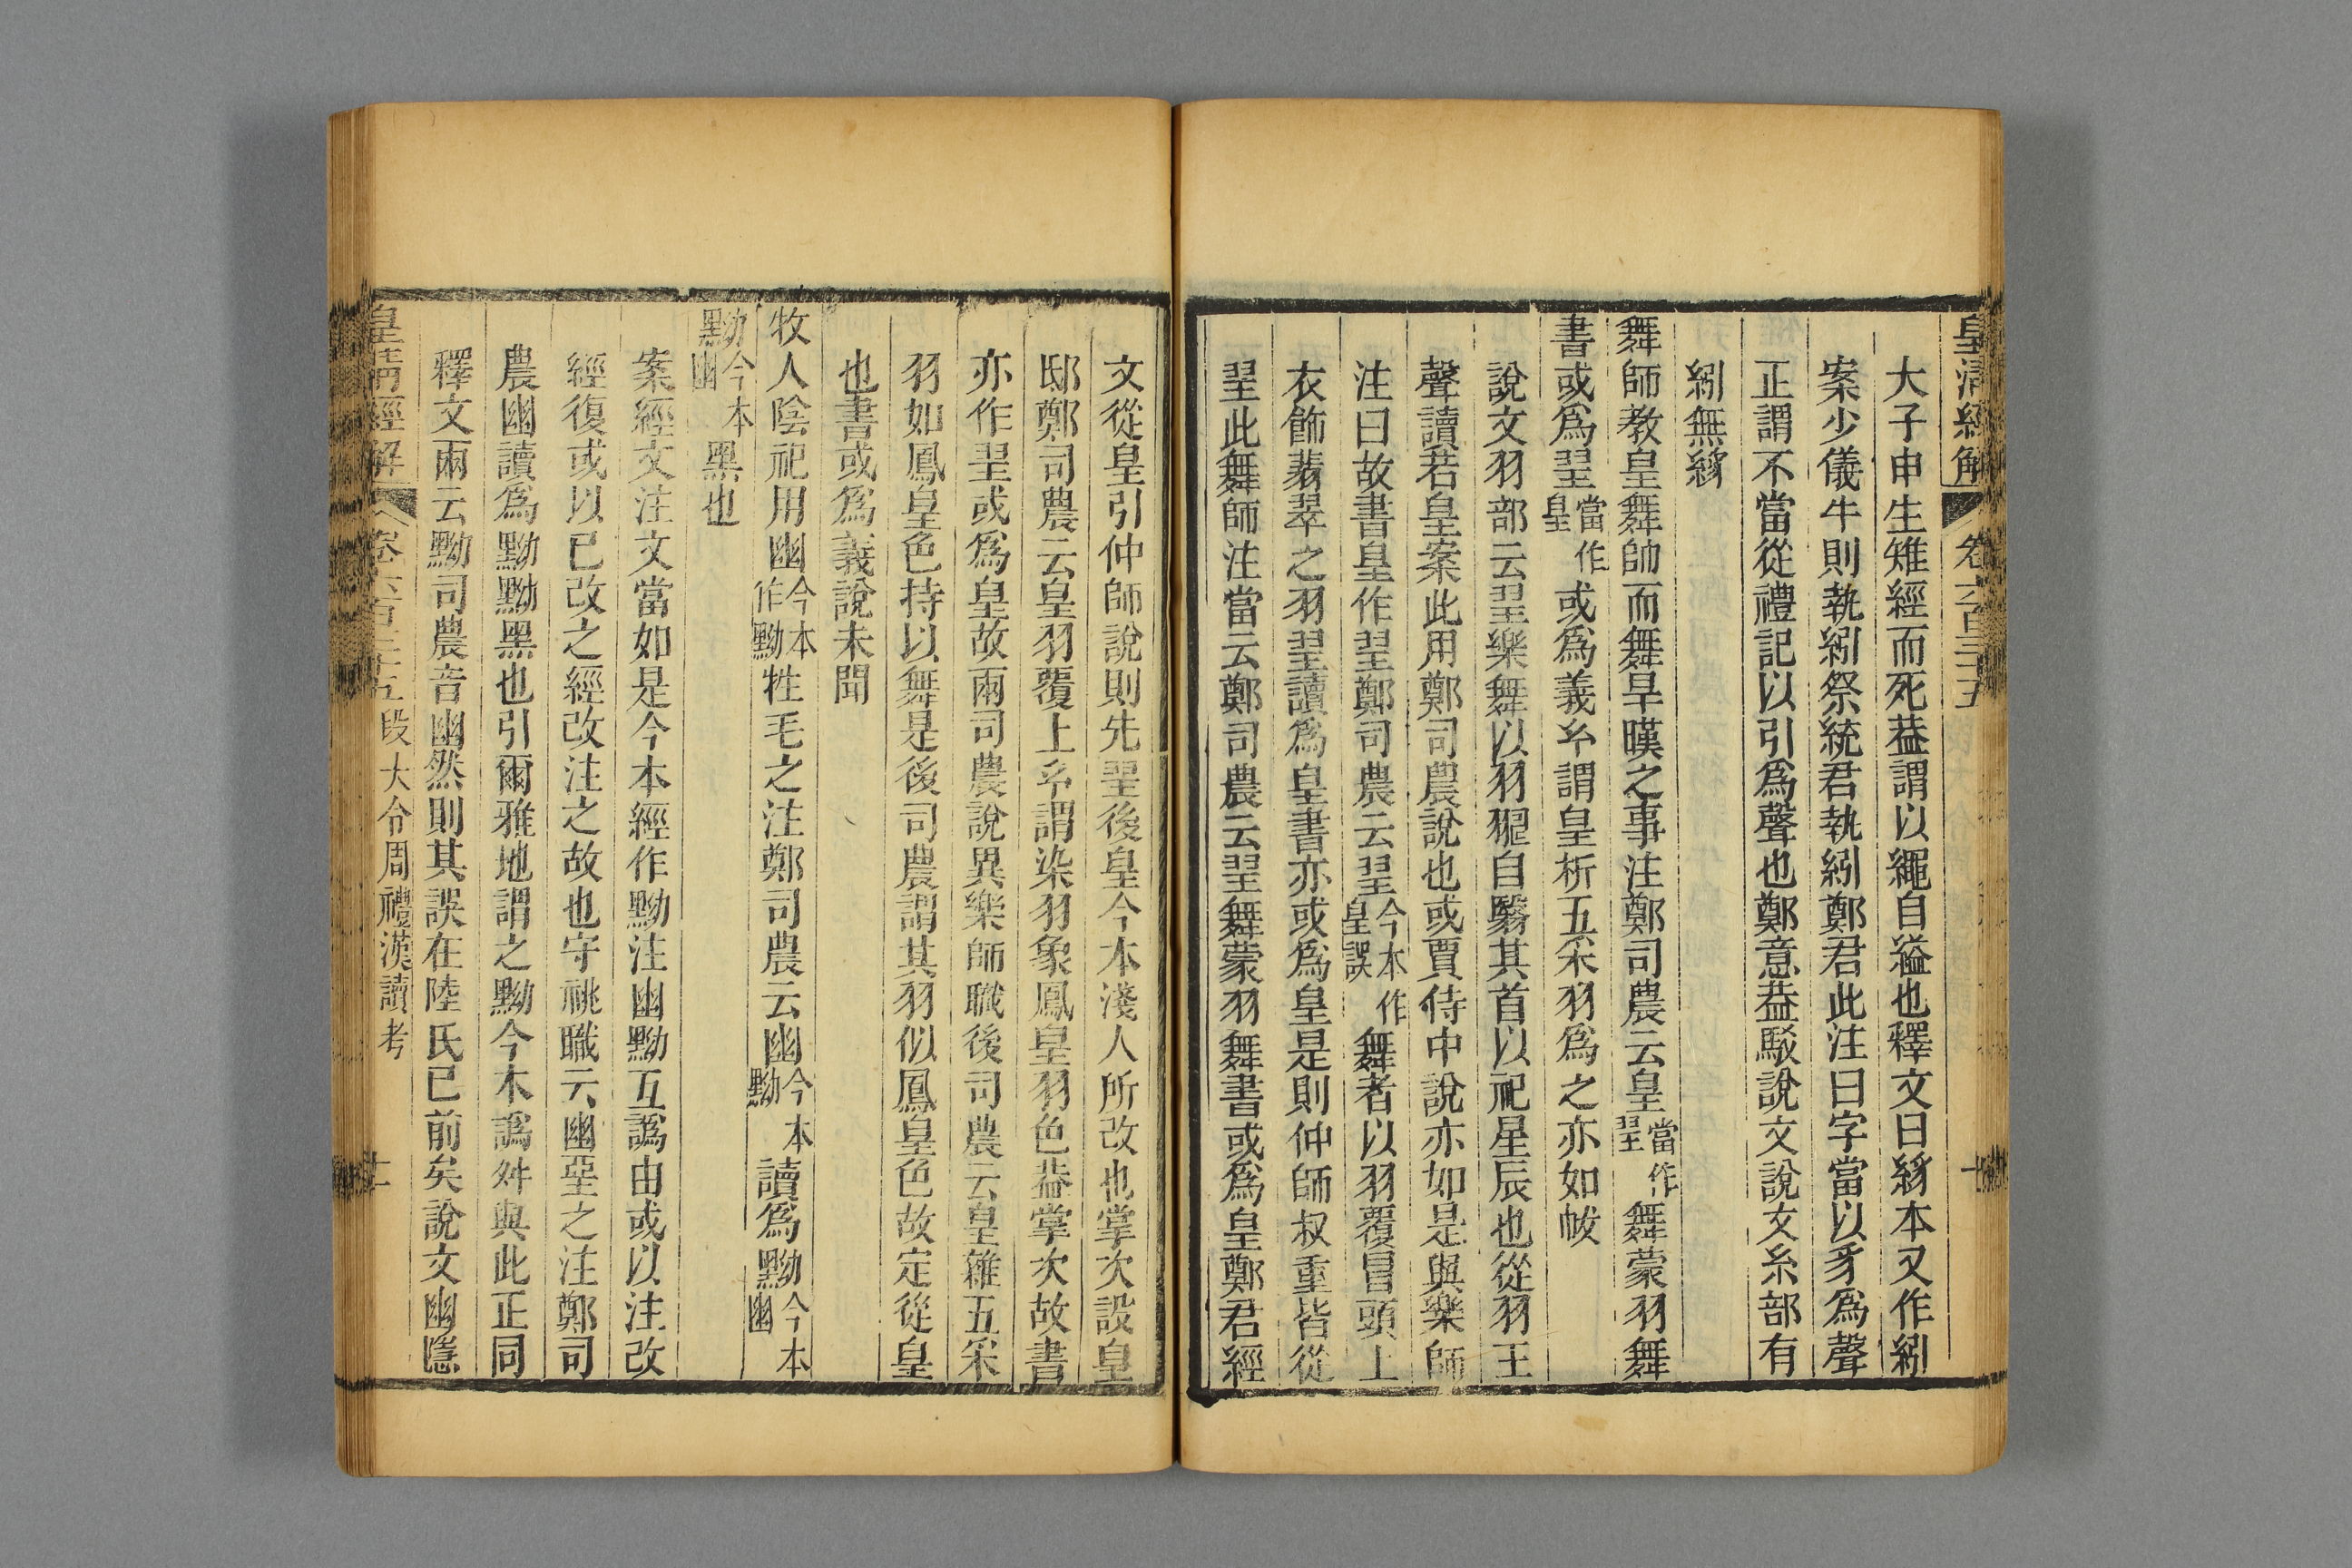 皇清經解 卷六百三十五 十
大子申生雉經而死葢謂以繩自縊也釋文曰絼本又作紖
案少儀牛則執紖祭統君執紖鄭君此注曰字當以豸爲聲
正謂不當從禮記以引爲聲也鄭意葢駁說文說文糸部有
紖無絼
舞師教皇舞帥而舞旱暵之事注鄭司農云皇當作䍿舞蒙羽舞
書或爲䍿當作皇或爲義玄謂皇析五采羽爲之亦如帗
說文羽部云䍿樂舞以羽𦐇自翳其首以祀星辰也從羽王
聲讀若皇案此用鄭司農說也或賈侍中說亦如是與樂師
注曰故書皇作䍿鄭司農云䍿今本作皇誤舞者以羽覆冒頭上
衣飾翡翠之羽䍿讀爲皇書亦或爲皇是則仲師叔重皆從
䍿此舞師注當云鄭司農云䍿舞蒙羽舞書或爲皇鄭君經
文從皇引仲師說則先䍿後皇今本淺人所改也掌次設皇
邸鄭司農云皇羽覆上玄謂染羽象鳳皇羽色葢掌次故書
亦作䍿或爲皇故兩司農說異樂師職後司農云皇雜五采
羽如鳳皇色持以舞是後司農謂其羽似鳳皇色故定從皇
也書或爲義說未聞
牧人陰祀用幽今本作黝牲毛之注鄭司農云幽今本黝讀爲黝今本幽
黝今本幽黑也
案經文注文當如是今本經作黝注幽黝互譌由或以注改
經復或以已改之經改注之故也守祧職云幽堊之注鄭司
農幽讀爲黝黝黑也引爾雅地謂之黝今本譌舛與此正同
釋文兩云黝司農音幽然則其誤在陸氏已前矣說文幽隱
皇清經解 卷六百三十五 段大令周禮漢讀考 十一